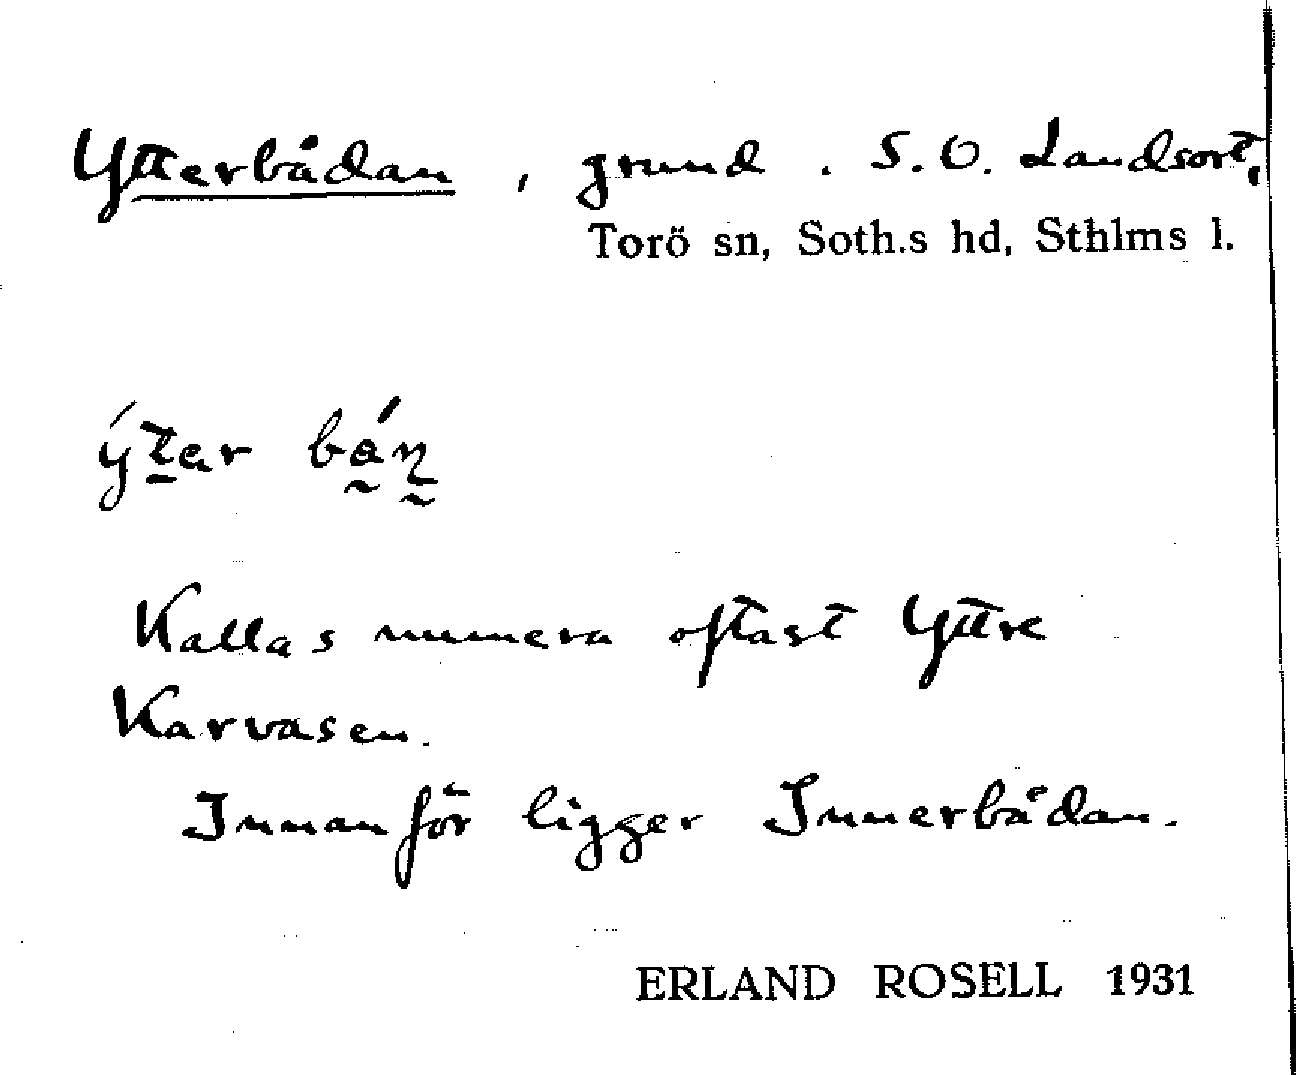 Ytterbådan, grund. S.O. Landsort,
Torö sn, Soth.s hd, Sthlms l.
Kallas numera oftast Yttre
Karvasen.
Innanför ligger Innerbådan.
ERLAND ROSELL 1931